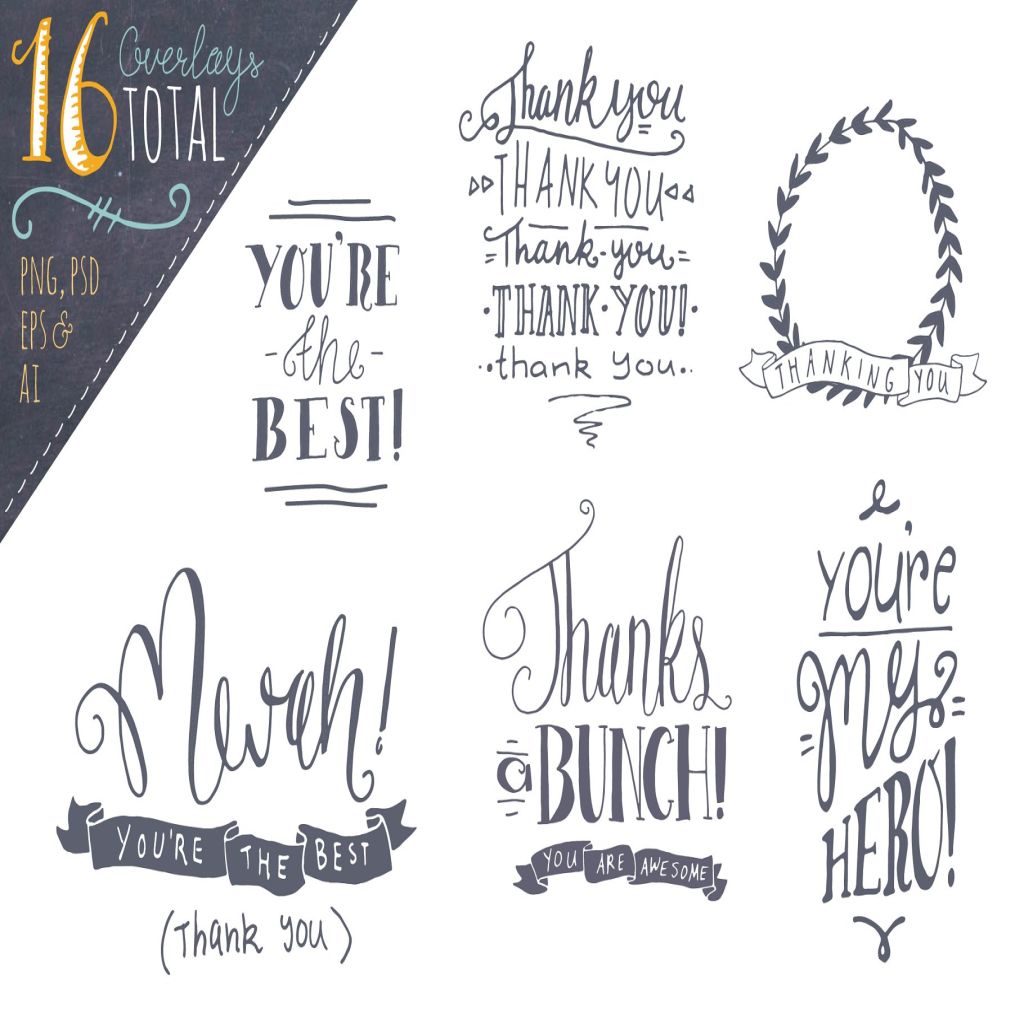 16 Overlays
TOTAL
PNG, PSD
EPS &
AI
YOU'RE
-the-
BEST!
Thank you
THANK YOU
=Thank·you=
·THANK·YOU!·
·•thank you.·
THANKING YOU
Mwah!
YOU'RE THE BEST
(Thank you)
Thanks
a BUNCH!
YOU ARE AWESOME
you're
My
HERO!